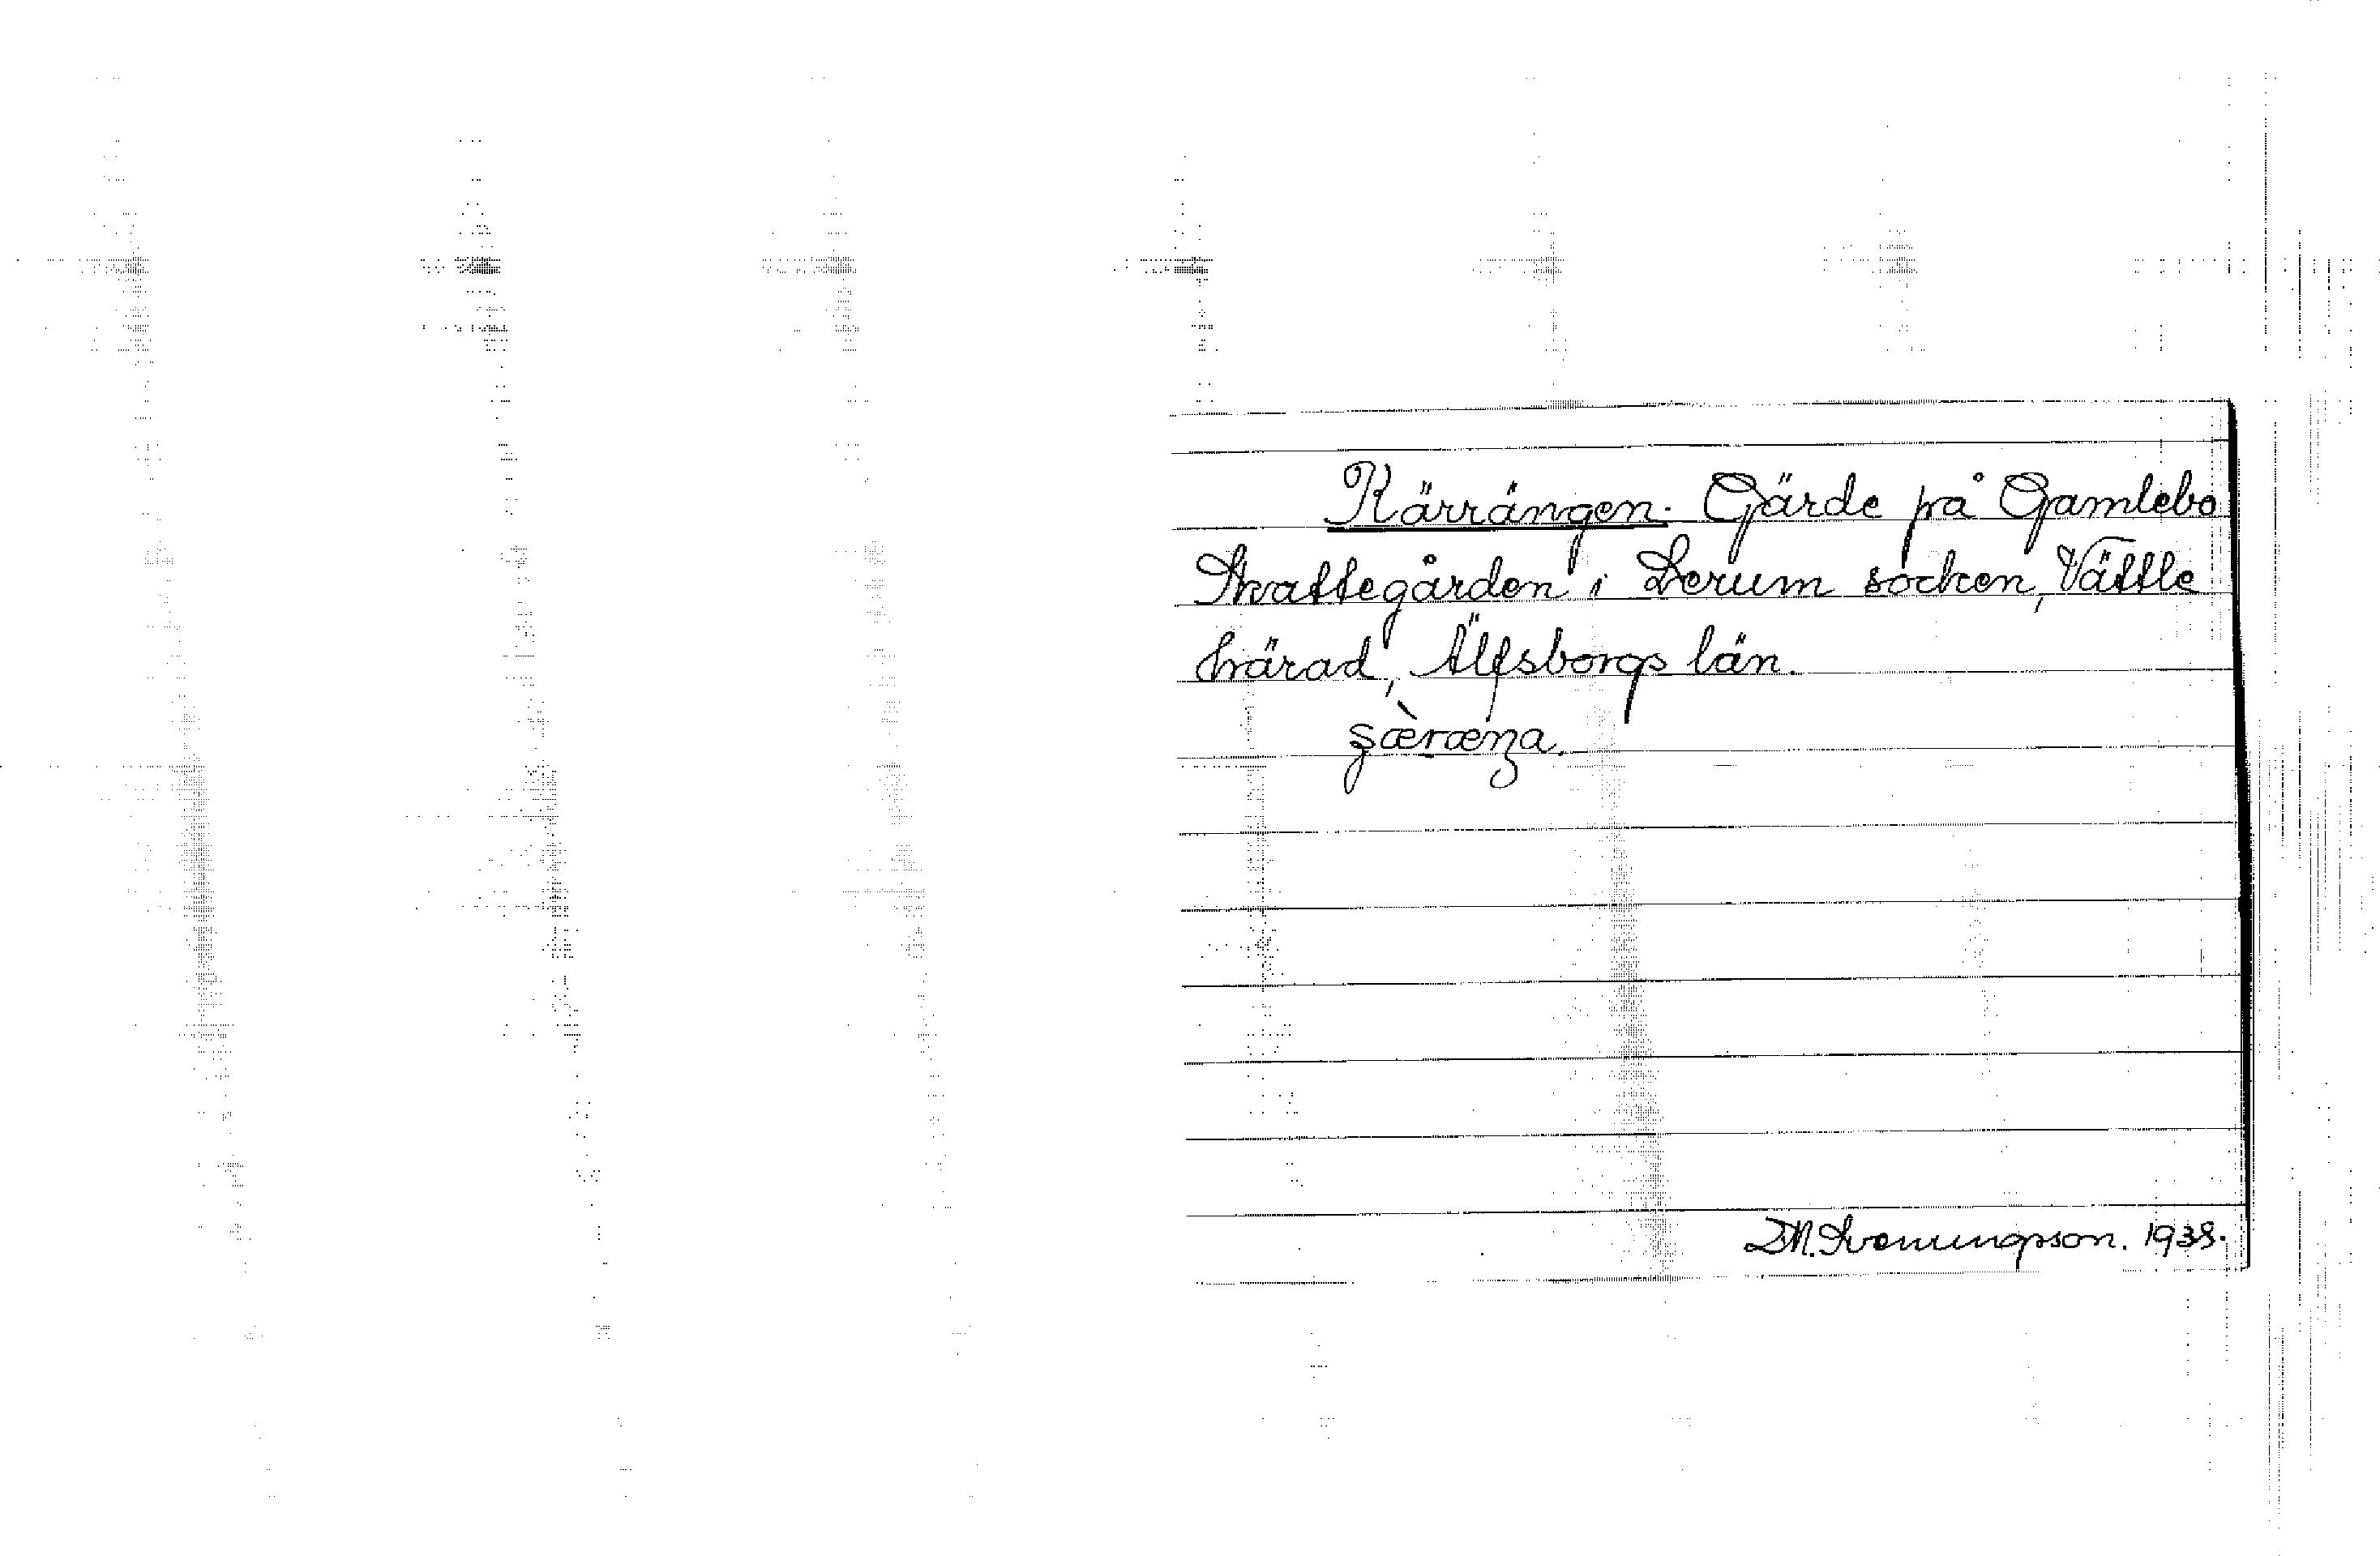 Kärrängen. Gärde på Gamlebo
Skattegården i Lerum socken, Vättle
härad, Älfsborgs län.
D.M. Svenningsson. 1938.